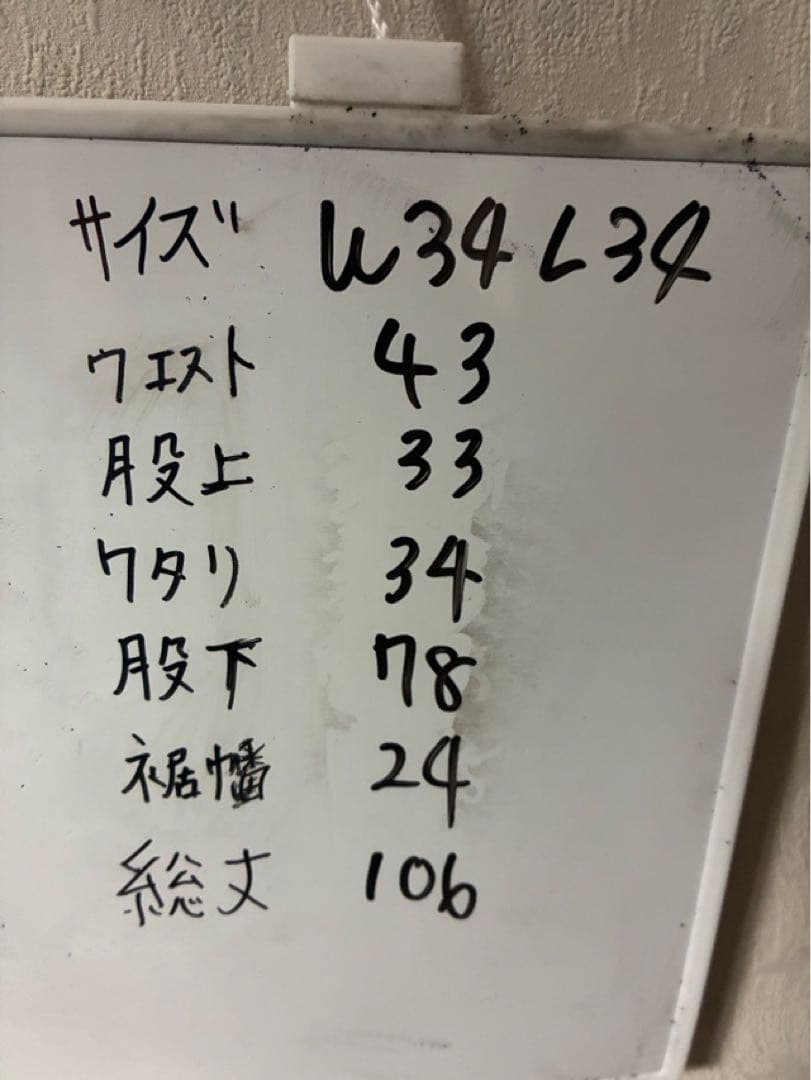 サイズ W34 L34
ウエスト 43
股上 33
ワタリ 34
股下 78
裾幡 24
総丈 106